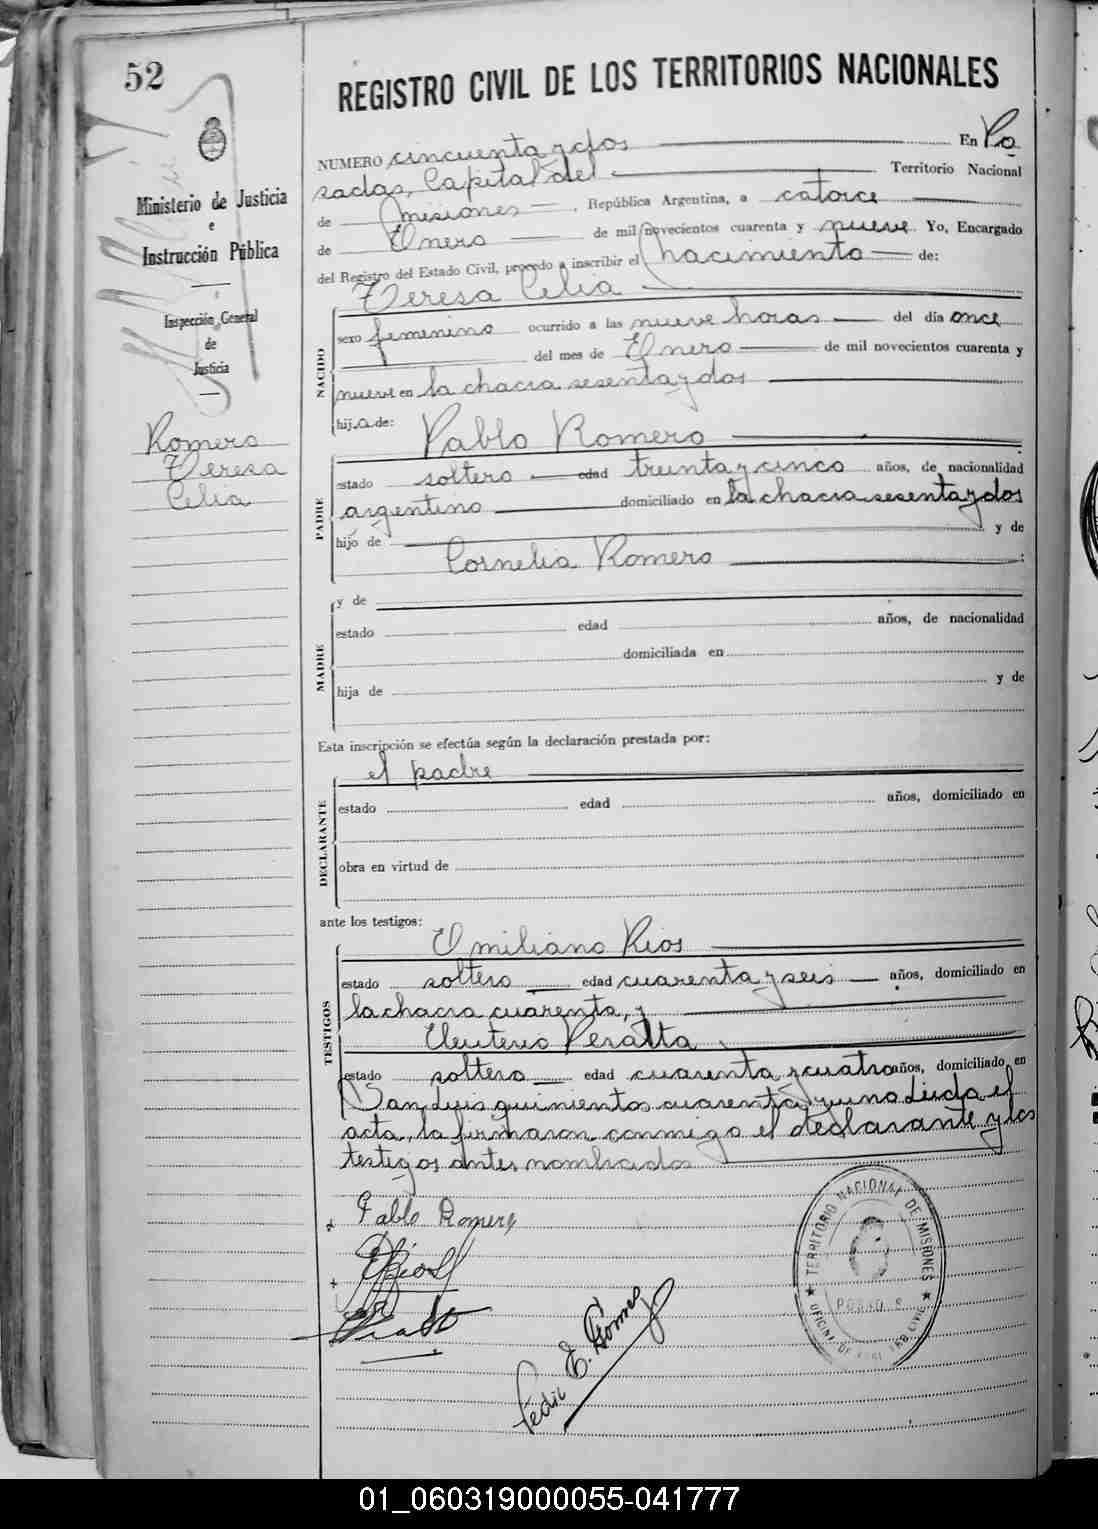 52
Ministerio de Justicia
e
Instrucción Pública
Inspección General
de
Justicia
Romero
Teresa
Celia
REGISTRO CIVIL DE LOS TERRITORIOS NACIONALES
NUMERO cincuenta y dos En Po
sadas, Capital del Territorio Nacional
de Misiones, República Argentina, a catorce
de Enero de mil novecientos cuarenta y nueve Yo, Encargado
del Registro del Estado Civil, procedo a inscribir el nacimiento de:
Teresa Celia
NACIDO
sexo femenino ocurrido a las nueve horas del día once
del mes de Enero de mil novecientos cuarenta y
nueve en la chacra sesenta y dos
hij a de: Pablo Romero
PADRE
estado soltero edad treinta y cinco años, de nacionalidad
argentino domiciliado en la chacra sesenta y dos
hijo de y de
Cornelia Romero ;
MADRE
y de
estado edad años, de nacionalidad
domiciliada en
hija de y de
Esta inscripción se efectúa según la declaración prestada por:
el padre
DECLARANTE
estado edad años, domiciliado en
obra en virtud de
ante los testigos:
Emiliano Rios
TESTIGOS
estado soltero edad cuarenta y seis años, domiciliado en
la chacra cuarenta, y
Eleuterio Peralta
estado soltero edad cuarenta y cuatro años, domiciliado en
San Luis quinientos cuarenta y uno Leida el
acta, la firmaron conmigo el declarante y los
testigos antes nombrados
Pablo Romero
E. Gomez
TERRITORIO NACIONAL DE MISIONES
01_060319000055-041777